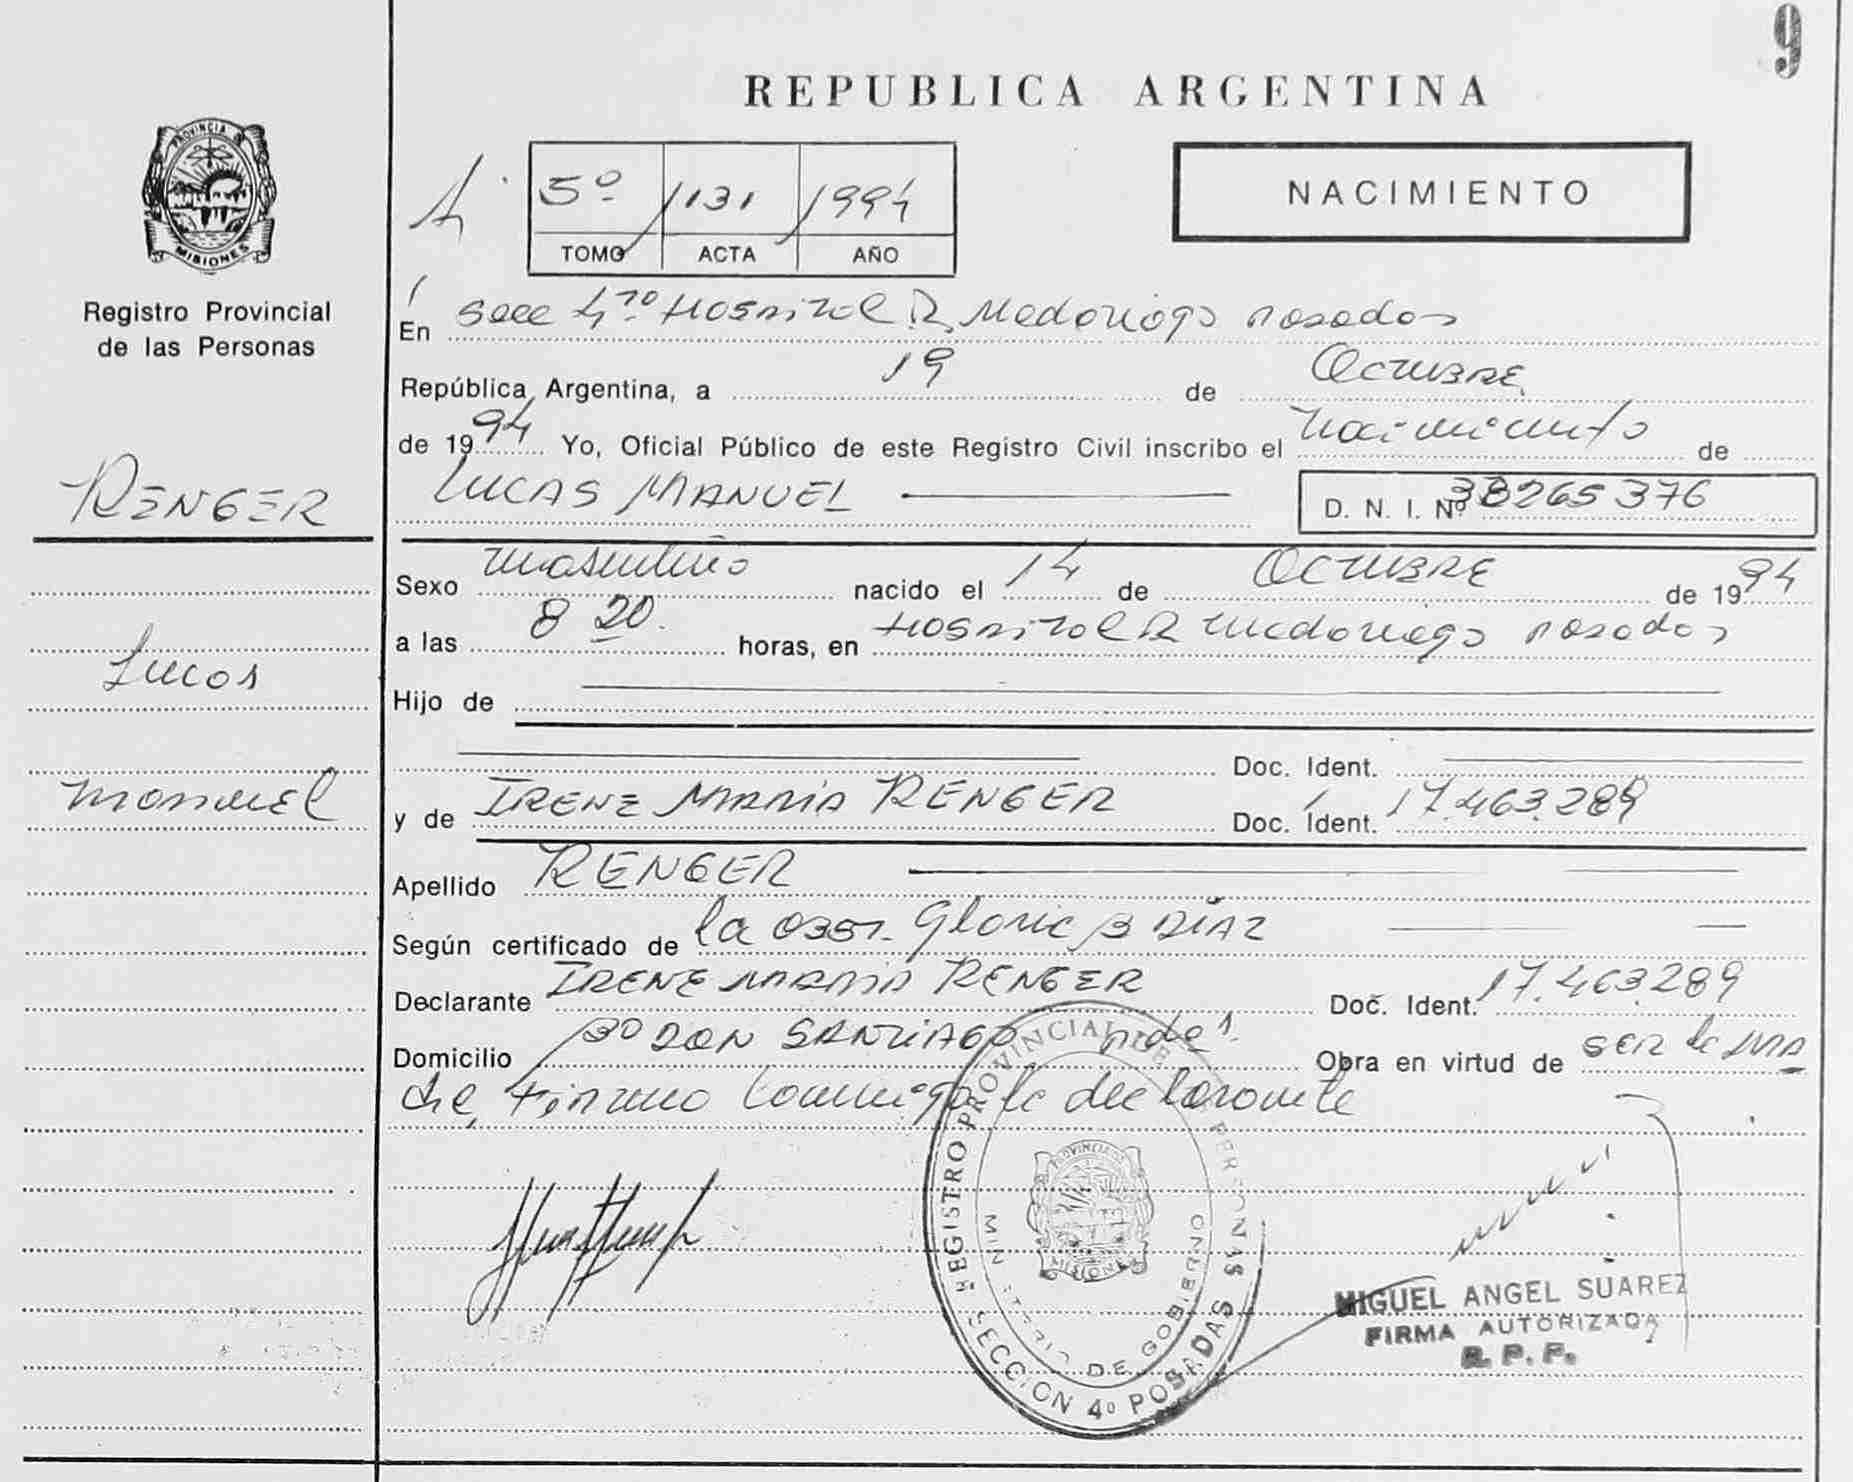 9
REPUBLICA ARGENTINA
PROVINCIA DE
MISIONES
Registro Provincial
de las Personas
5º 1131 1994
TOMO ACTA AÑO
NACIMIENTO
En Secc 4ta Hospital R. Madariaga Posadas
República Argentina, a 19 de Octubre
de 1994 Yo, Oficial Público de este Registro Civil inscribo el nacimiento de
RENGER
LUCAS MANUEL D. N. I. Nº 38265376
Sexo masculino nacido el 14 de Octubre de 1994
a las 8 20. horas, en Hospital R Madariaga Posadas
Lucas
Hijo de
Doc. Ident.
Manuel
y de IRENE MARIA RENGER Doc. Ident. 17.463.289
Apellido RENGER
Según certificado de la Obst. Gloria B DIAZ
Declarante IRENE MARIA RENGER Doc. Ident. 17.463.289
Domicilio Bº DON SANTIAGO Pdas. Obra en virtud de ser la MA
dre, Firmando conmigo la declarante
REGISTRO PROVINCIAL DE PERSONAS
MINISTERIO DE GOBIERNO
PROVINCIA DE
MISIONES
SECCION 4º POSADAS
MIGUEL ANGEL SUAREZ
FIRMA AUTORIZADA
R. P. P.